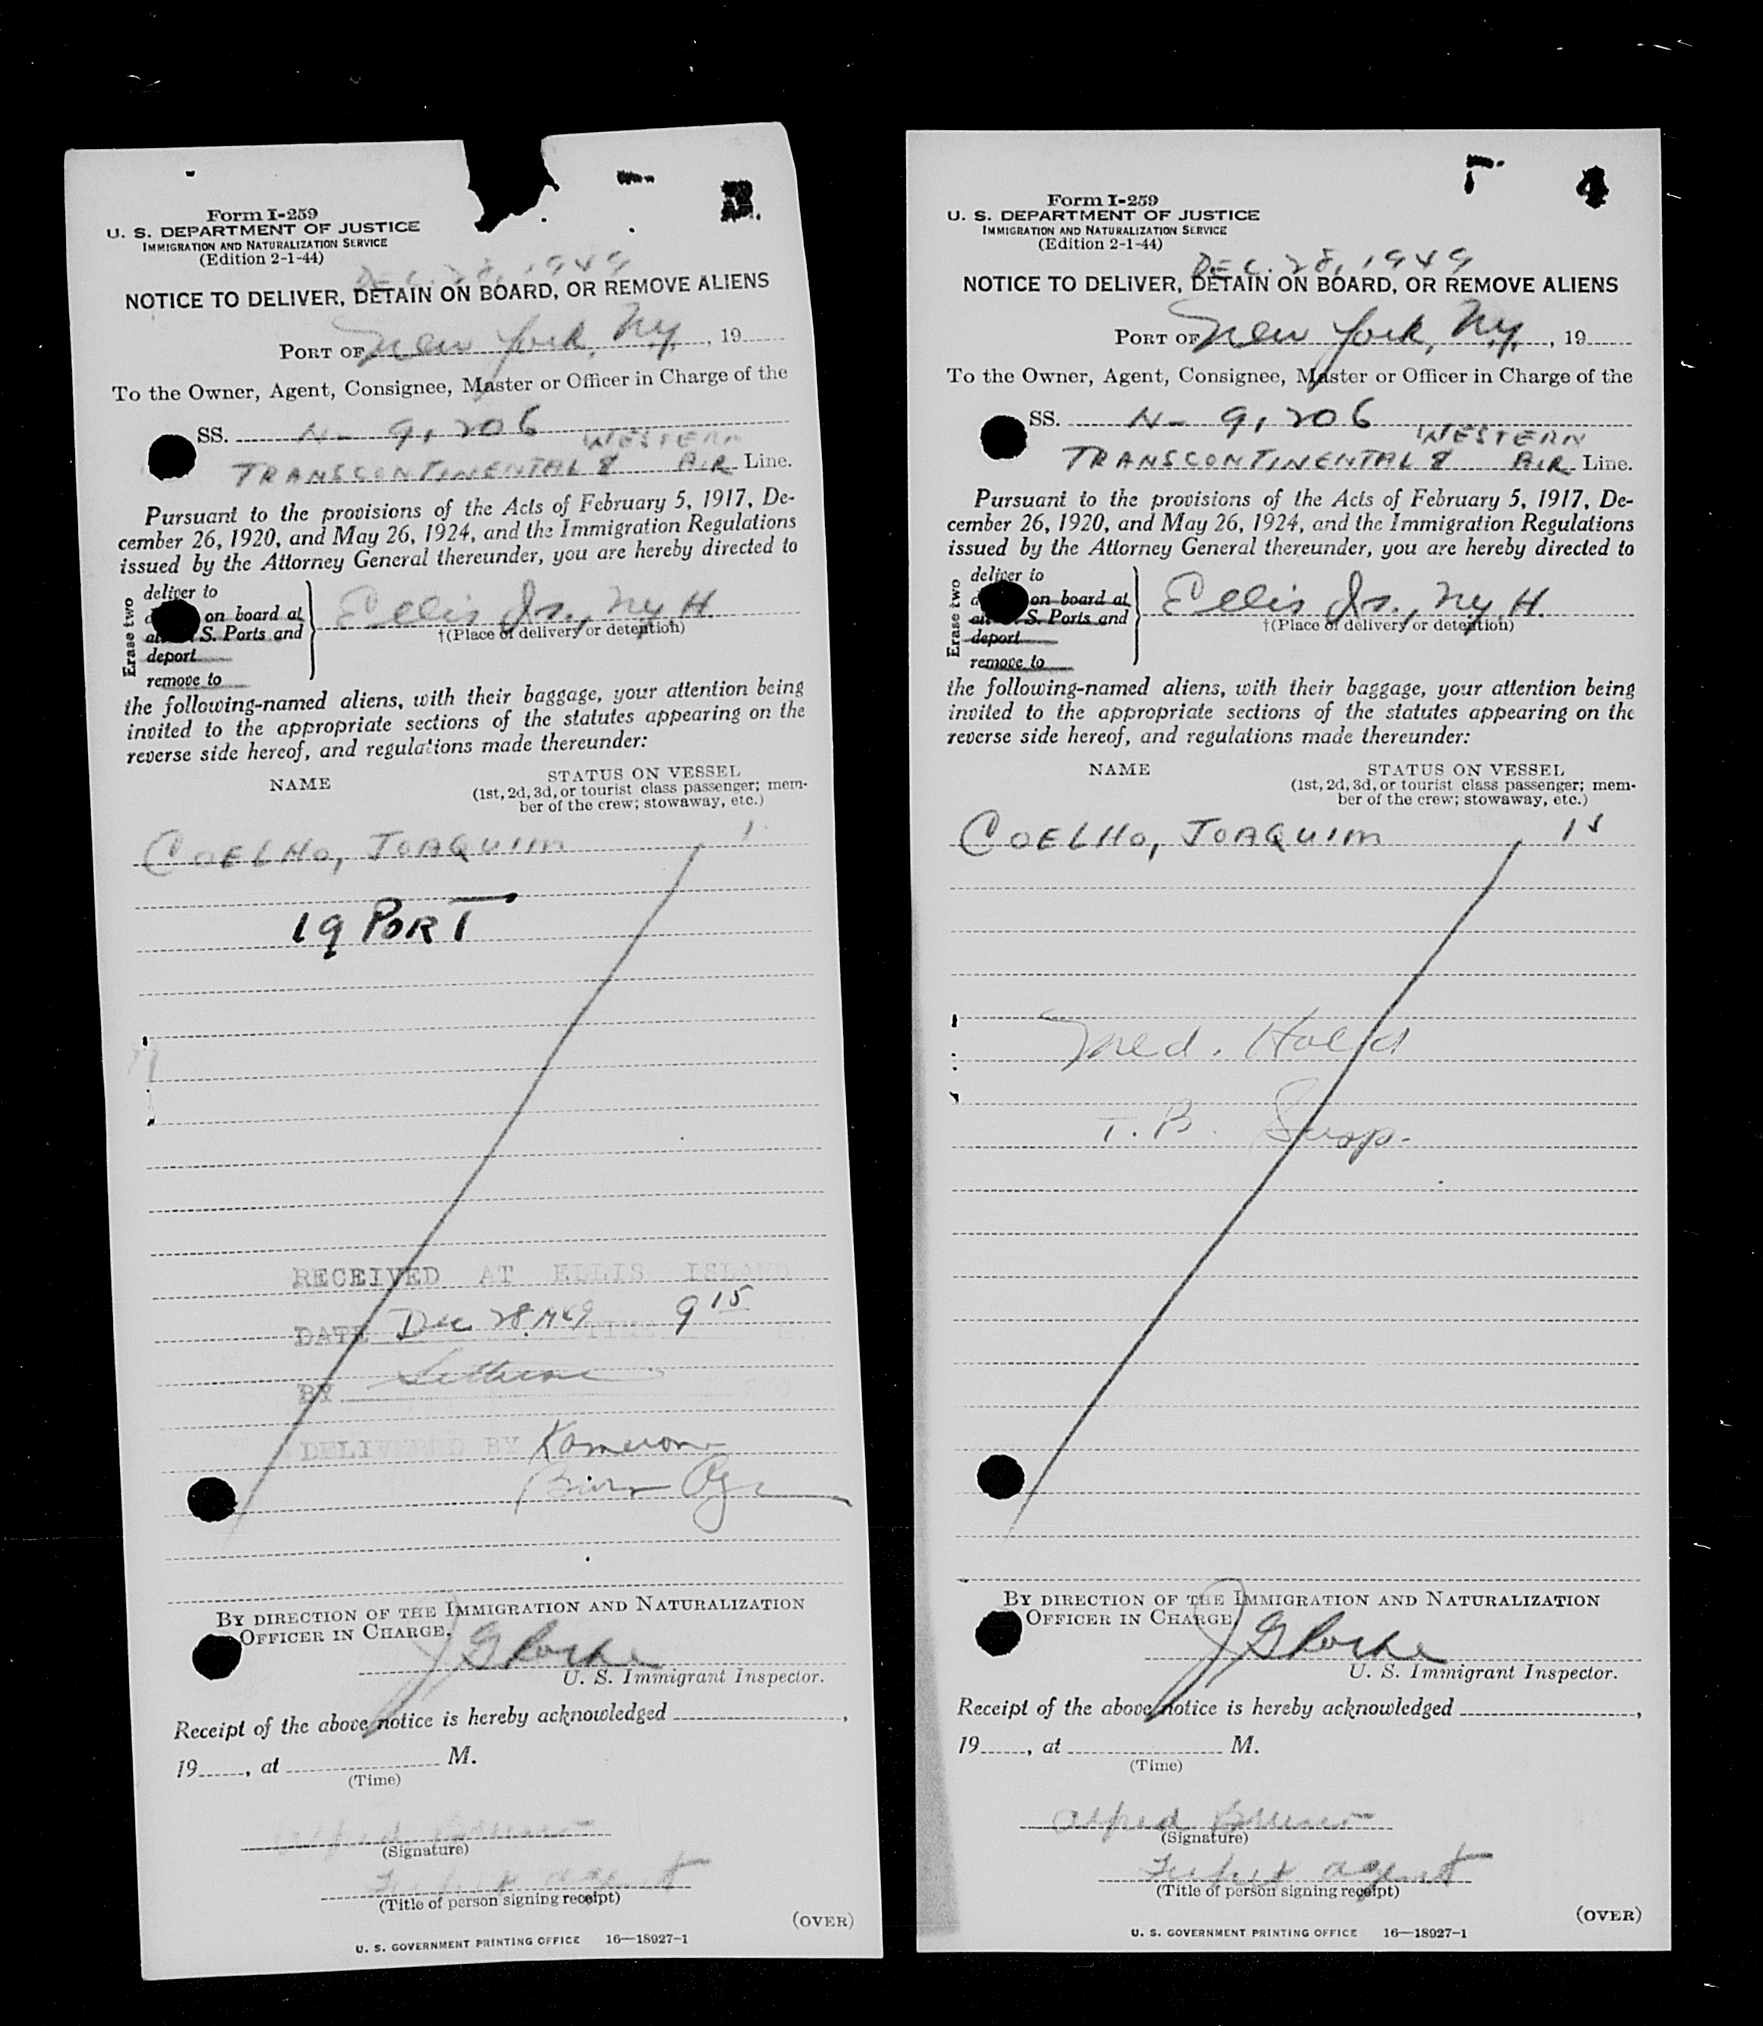 Form I-259
U. S. DEPARTMENT OF JUSTICE
IMMIGRATION AND NATURALIZATION SERVICE
(Edition 2-1-44)
DEC. 28, 1949
NOTICE TO DELIVER, DETAIN ON BOARD, OR REMOVE ALIENS
PORT OF New York, N.Y., 19
To the Owner, Agent, Consignee, Master or Officer in Charge of the
SS. N- 9,206
WESTERN
TRANSCONTINENTAL & AIR Line.
Pursuant to the provisions of the Acts of February 5, 1917, De-
cember 26, 1920, and May 26, 1924, and the Immigration Regulations
issued by the Attorney General thereunder, you are hereby directed to
Erase two
deliver to
on board at
S. Ports and
deport
remove to
Ellis Is., NY H.
†(Place of delivery or detention)
the following-named aliens, with their baggage, your attention being
invited to the appropriate sections of the statutes appearing on the
reverse side hereof, and regulations made thereunder:
NAME STATUS ON VESSEL
(1st, 2d, 3d, or tourist class passenger; mem-
ber of the crew; stowaway, etc.)
COELHO, JOAQUIM 1
19 PORT
RECEIVED AT ELLIS ISLAND
DATE Dec 28, 1949 TIME 9 15
BY
DELIVERED BY
BY DIRECTION OF THE IMMIGRATION AND NATURALIZATION
OFFICER IN CHARGE,
J G Roche
U. S. Immigrant Inspector.
Receipt of the above notice is hereby acknowledged ,
19 , at M.
(Time)
Alfred Bruno
(Signature)
agent
(Title of person signing receipt)
(OVER)
U. S. GOVERNMENT PRINTING OFFICE 16—18927-1
4
Form I-259
U. S. DEPARTMENT OF JUSTICE
IMMIGRATION AND NATURALIZATION SERVICE
(Edition 2-1-44)
DEC. 28, 1949
NOTICE TO DELIVER, DETAIN ON BOARD, OR REMOVE ALIENS
PORT OF New York, N.Y., 19
To the Owner, Agent, Consignee, Master or Officer in Charge of the
SS. N- 9,206
WESTERN
TRANSCONTINENTAL & AIR Line.
Pursuant to the provisions of the Acts of February 5, 1917, De-
cember 26, 1920, and May 26, 1924, and the Immigration Regulations
issued by the Attorney General thereunder, you are hereby directed to
Erase two
deliver to
on board at
S. Ports and
deport
remove to
Ellis Is., NY H.
†(Place of delivery or detention)
the following-named aliens, with their baggage, your attention being
invited to the appropriate sections of the statutes appearing on the
reverse side hereof, and regulations made thereunder:
NAME STATUS ON VESSEL
(1st, 2d, 3d, or tourist class passenger; mem-
ber of the crew; stowaway, etc.)
COELHO, JOAQUIM 1s
Med. Hold
T.B. Susp.
BY DIRECTION OF THE IMMIGRATION AND NATURALIZATION
OFFICER IN CHARGE,
J G Roche
U. S. Immigrant Inspector.
Receipt of the above notice is hereby acknowledged ,
19 , at M.
(Time)
Alfred Bruno
(Signature)
agent
(Title of person signing receipt)
(OVER)
U. S. GOVERNMENT PRINTING OFFICE 16—18927-1